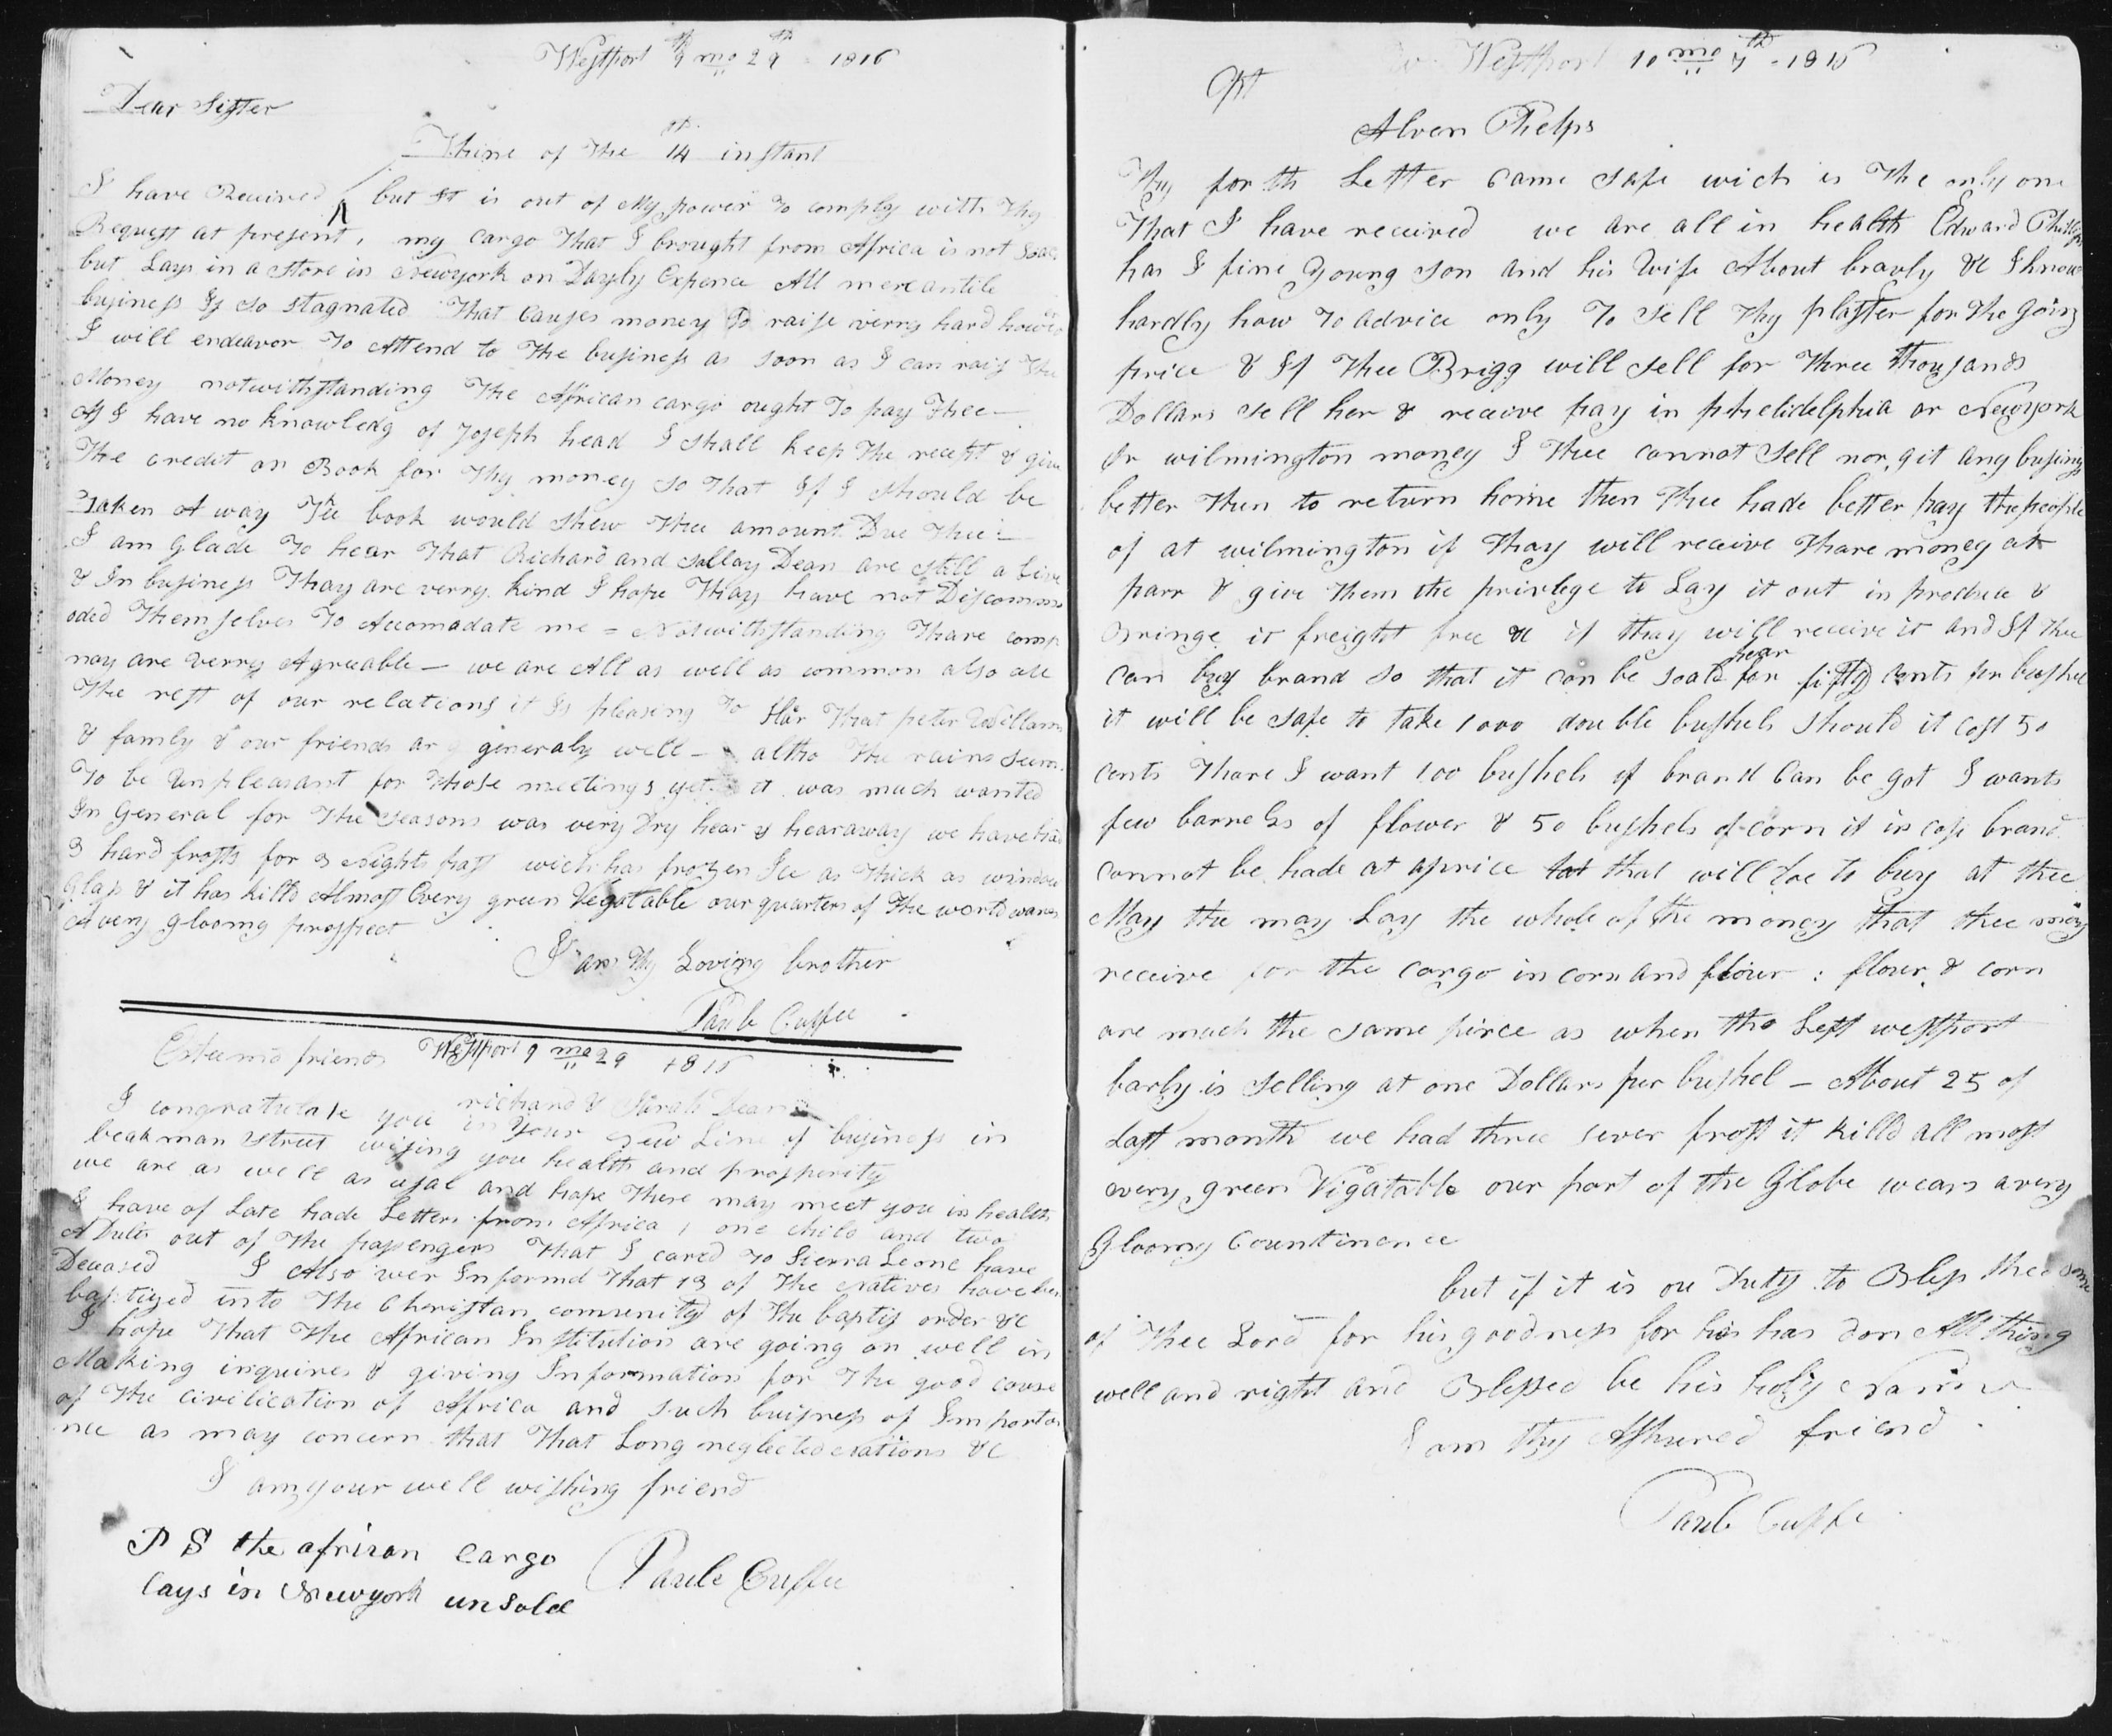 Westport 9th mo 29th 1816
Dear Sister
Thine of the 14th instant
I have Received but It is out of My power to comply with thy
Request at present, my cargo that I brought from Africa is not
but Lays in a Store in Newyork on Dayly Expence All mercantile
business Is so Stagnated that Causes money to raise verry hard
I will endeavor to Attend to the business as soon as I can rais the
Money notwithstanding the African cargo ought to pay Thee —
As I have no knowledg of Joseph head I shall keep the recept & give
The credit on Book for thy money so that If I should be
Taken A way The book would Shew thee amount Due thee —
I am glade to hear that Richard and Sallay Dean are still a live
& In business Thay are verry kind I hope Thay have not Discommo
oded Themselves to Accomadate me = Notwithstanding Thare comp
nay are verry Agreeable — we are All as well as common also are
the rest of our relations it Is pleasing to Har that peter Willams
& famly & our friends ar generaly well — altho the rains seem
To be Unpleasant for those meetings yet it was much wanted
In General for the Seasons was very Dry hear & hearaway we have had
3 hard frosts for 3 Nights past wich has frozen Ice as thick as window
Glass & it has killd Almost Every green Vegatable our quarters of the world wares
A very gloomy prospect
I am thy Loving brother
Paul Cuffee
Esteemd friends Westport 9 mo 29 1816
richard & Sarah Dean
I congratulate you in your new Line of business in
beakman Street wising you health and prosperity
we are as well as usal and hope these may meet you in health
I have of Late hade Letters from Africa, one child and two
Adults out of the passengers that I cared to Sierra Leone have
Deceased I Also wer Informd that 13 of the natives have ben
baptized into the Christan comunity of the baptis order &c
I hope that the African Institution are going on well in
Making inquires & giving Information for the good couse
of the civilication of Africa and such buisness of Importan
nce as may concern that that Long neglected nations &c
I am your well wishing friend
P S the african cargo
lays in Newyork unsold
Paul Cuffee
Westport 10 mo 7th 1816
Alven Phelps
Thy forth Letter came safe wich is the only one
That I have received we are all in health Edward Phillips
has I fine young son and his Wife About bravly &c I know
hardly how to advice only to sell thy plaster for the going
price & If thee Brigg will sell for three thousands
Dollars sell her & receive pay in pheledelphia or Newyork
Or wilmington money I thee cannot sell nor git any business
better then to return home then thee hade better pay the people
of at wilmington if thay will receive thare money at
parr & give them the privlege to Lay it out in produce &
Bringe it freight free &c if thay will receive it and If thee
can buy brand so that it can be soald hear for fifty cents per bushel
it will be safe to take 1000 double bushels should it cost 50
cents thare I want 100 bushels if brand can be got I wants
few barrels of flower & 50 bushels of corn it in case brand
cannot be hade at aprice tat that will doe to buy at thee
May the may Lay the whole of the money that thee may
receive for the cargo in corn and flour : flour & corn
are much the same pirce as when tho Left westport
barly is selling at one Dollars per bushel — About 25 of
Last month we had three sever frost it killd all most
every green Vigatable our part of the Globe wears a very
Gloomy Countinance
but if it is ou Duty to Bless the
of thee Lord for his goodness for his has don All thing
well and right and Blessed be his holy Name
I am thy Asshured friend
Paul Cuffe